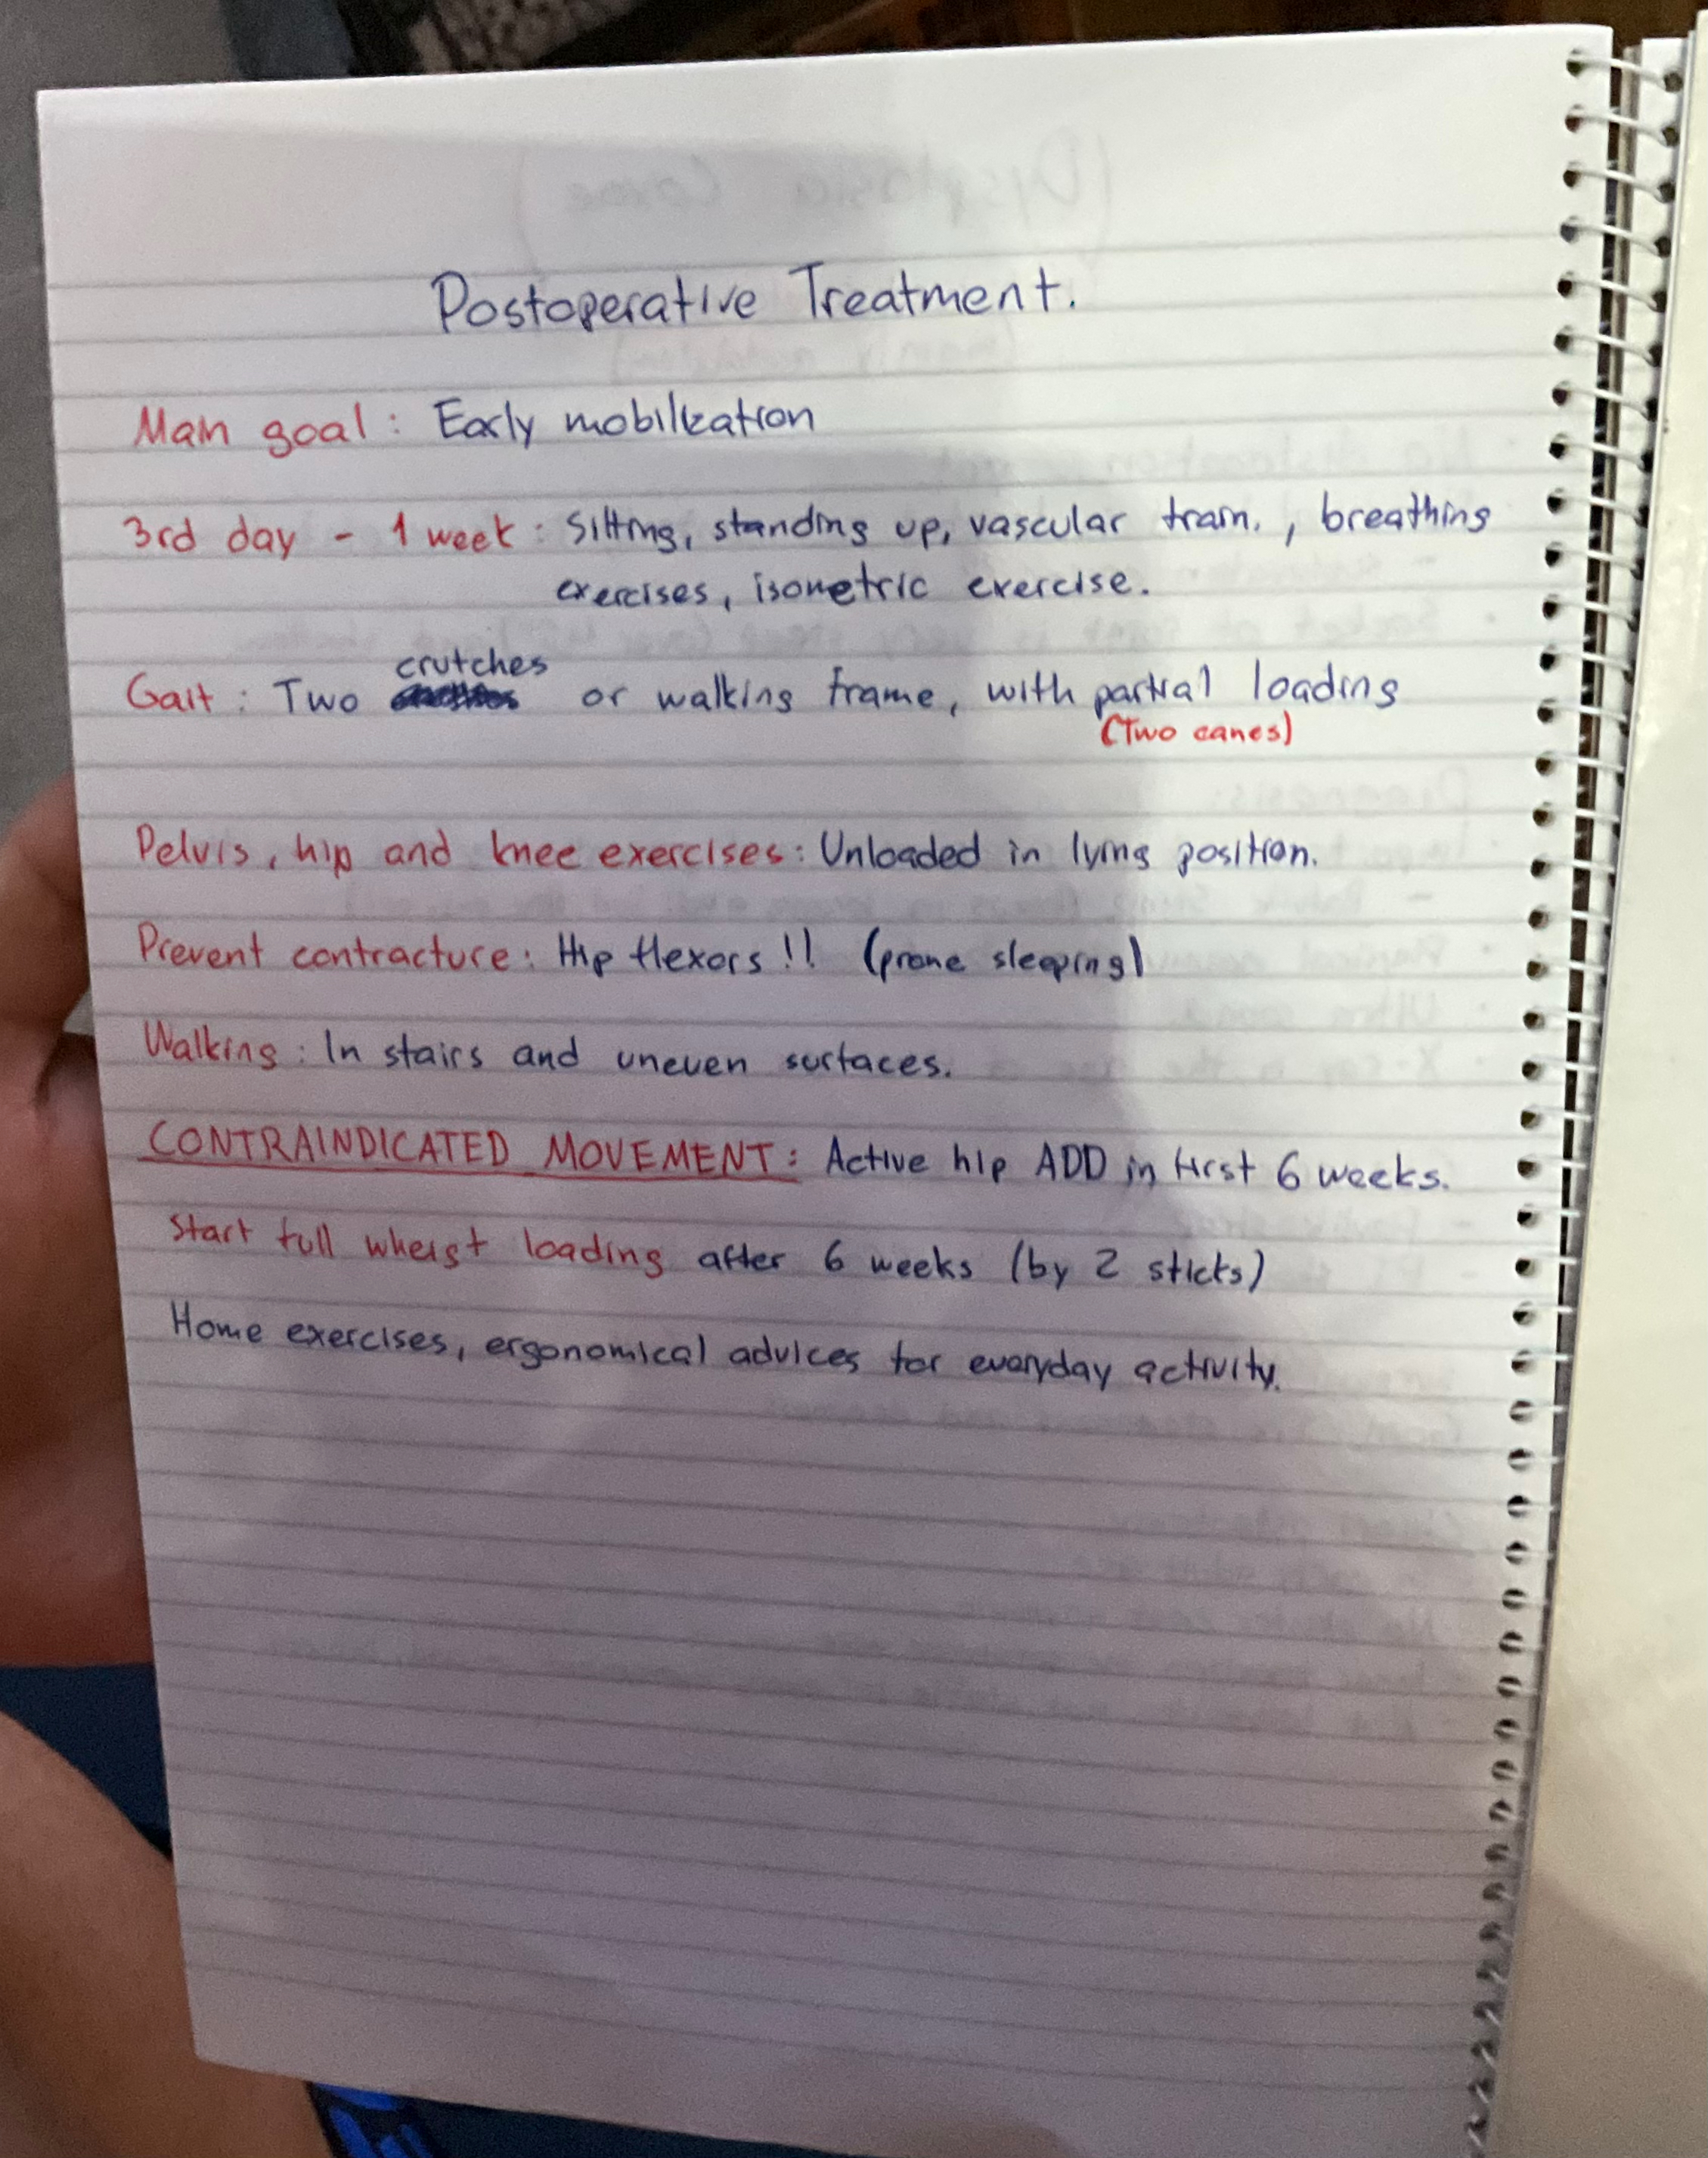 Postoperative Treatment.
Main goal: Early mobilization
3rd day - 1 week: Sitting, standing up, vascular train. , breathing
exercises, isometric exercise.
crutches
Gait: Two or walking frame, with partial loading
(Two canes)
Pelvis, hip and knee exercises: Unloaded in lying position.
Prevent contracture: Hip flexors !! (prone sleeping)
Walking: In stairs and uneven surfaces.
CONTRAINDICATED MOVEMENT: Active hip ADD in first 6 weeks.
Start full wheigt loading after 6 weeks (by 2 sticks)
Home exercises, ergonomical advices for everyday activity.